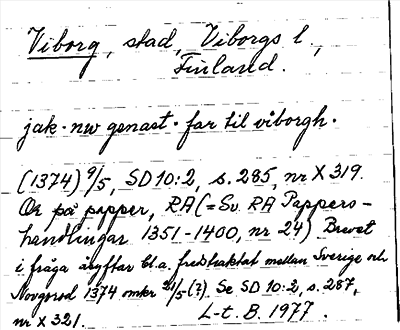 Viborg, stad, Viborgs l.,
Finland.
jak. nw genast. far til viborgh.
(1374) 9/5, SD 10:2, s. 285, nr X 319.
Or på papper, RA (= Sv. RA Pappers-
handlingar 1351-1400, nr 24) Brevet
i fråga åsyftar bl.a. fredstraktat mellan Sverige och
Novgorod 1374 omkr /5 (?) Se SD 10:2, s. 287,
nr X 321.
L-t. B. 1977.